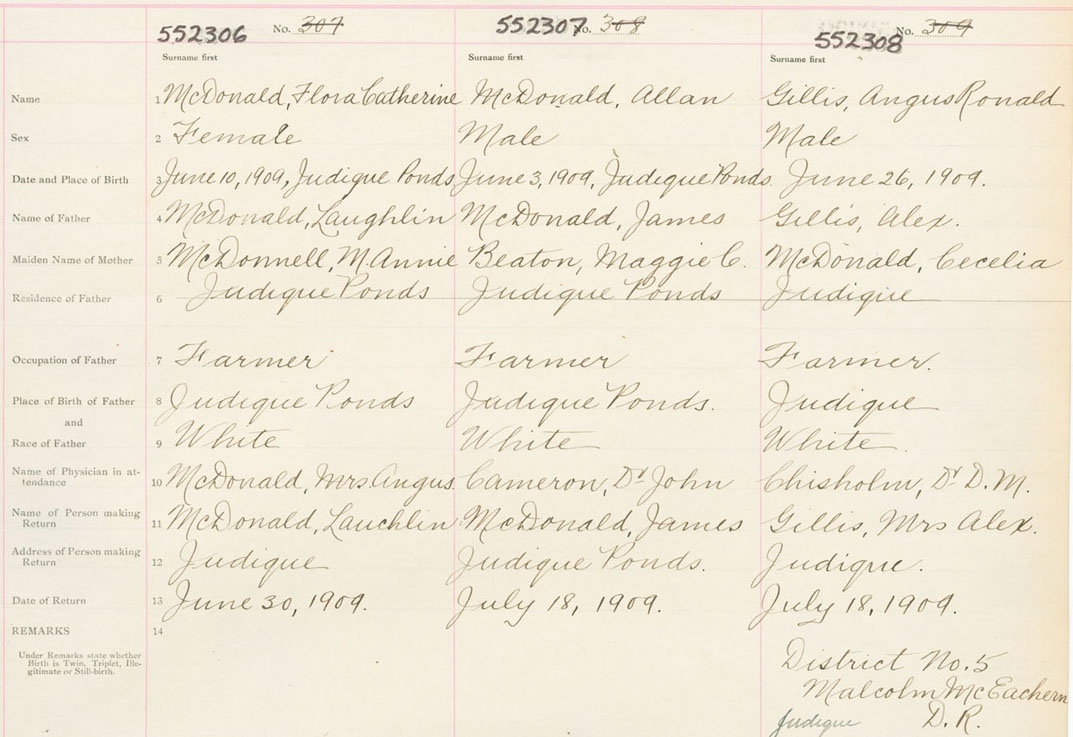 552306 No. 307 552307 No. 308 552308 No. 309
Surname first Surname first Surname first
Name 1 McDonald, Flora Catherine McDonald, Allan Gillis, Angus Ronald
Sex 2 Female Male Male
Date and Place of Birth 3 June 10, 1909, Judique Ponds June 3, 1909, Judique Ponds June 26, 1909.
Name of Father 4 McDonald, Laughlin McDonald, James Gillis, Alex.
Maiden Name of Mother 5 McDonnell, M. Annie Beaton, Maggie C. McDonald, Cecelia
Residence of Father 6 Judique Ponds Judique Ponds Judique
Occupation of Father 7 Farmer Farmer Farmer.
Place of Birth of Father 8 Judique Ponds Judique Ponds. Judique
and
Race of Father 9 White White White.
Name of Physician in at-
tendance 10 McDonald, Mrs. Angus. Cameron, Dr John Chisholm, Dr D. M.
Name of Person making
Return 11 McDonald, Lauchlin McDonald, James Gillis, Mrs Alex.
Address of Person making
Return 12 Judique Judique Ponds. Judique.
Date of Return 13 June 30, 1909. July 18, 1909. July 18, 1909.
REMARKS 14
Under Remarks state whether
Birth is Twin, Triplet, Ille-
gitimate or Still-birth.
District No. 5
Malcolm McEachern
Judique D. R.